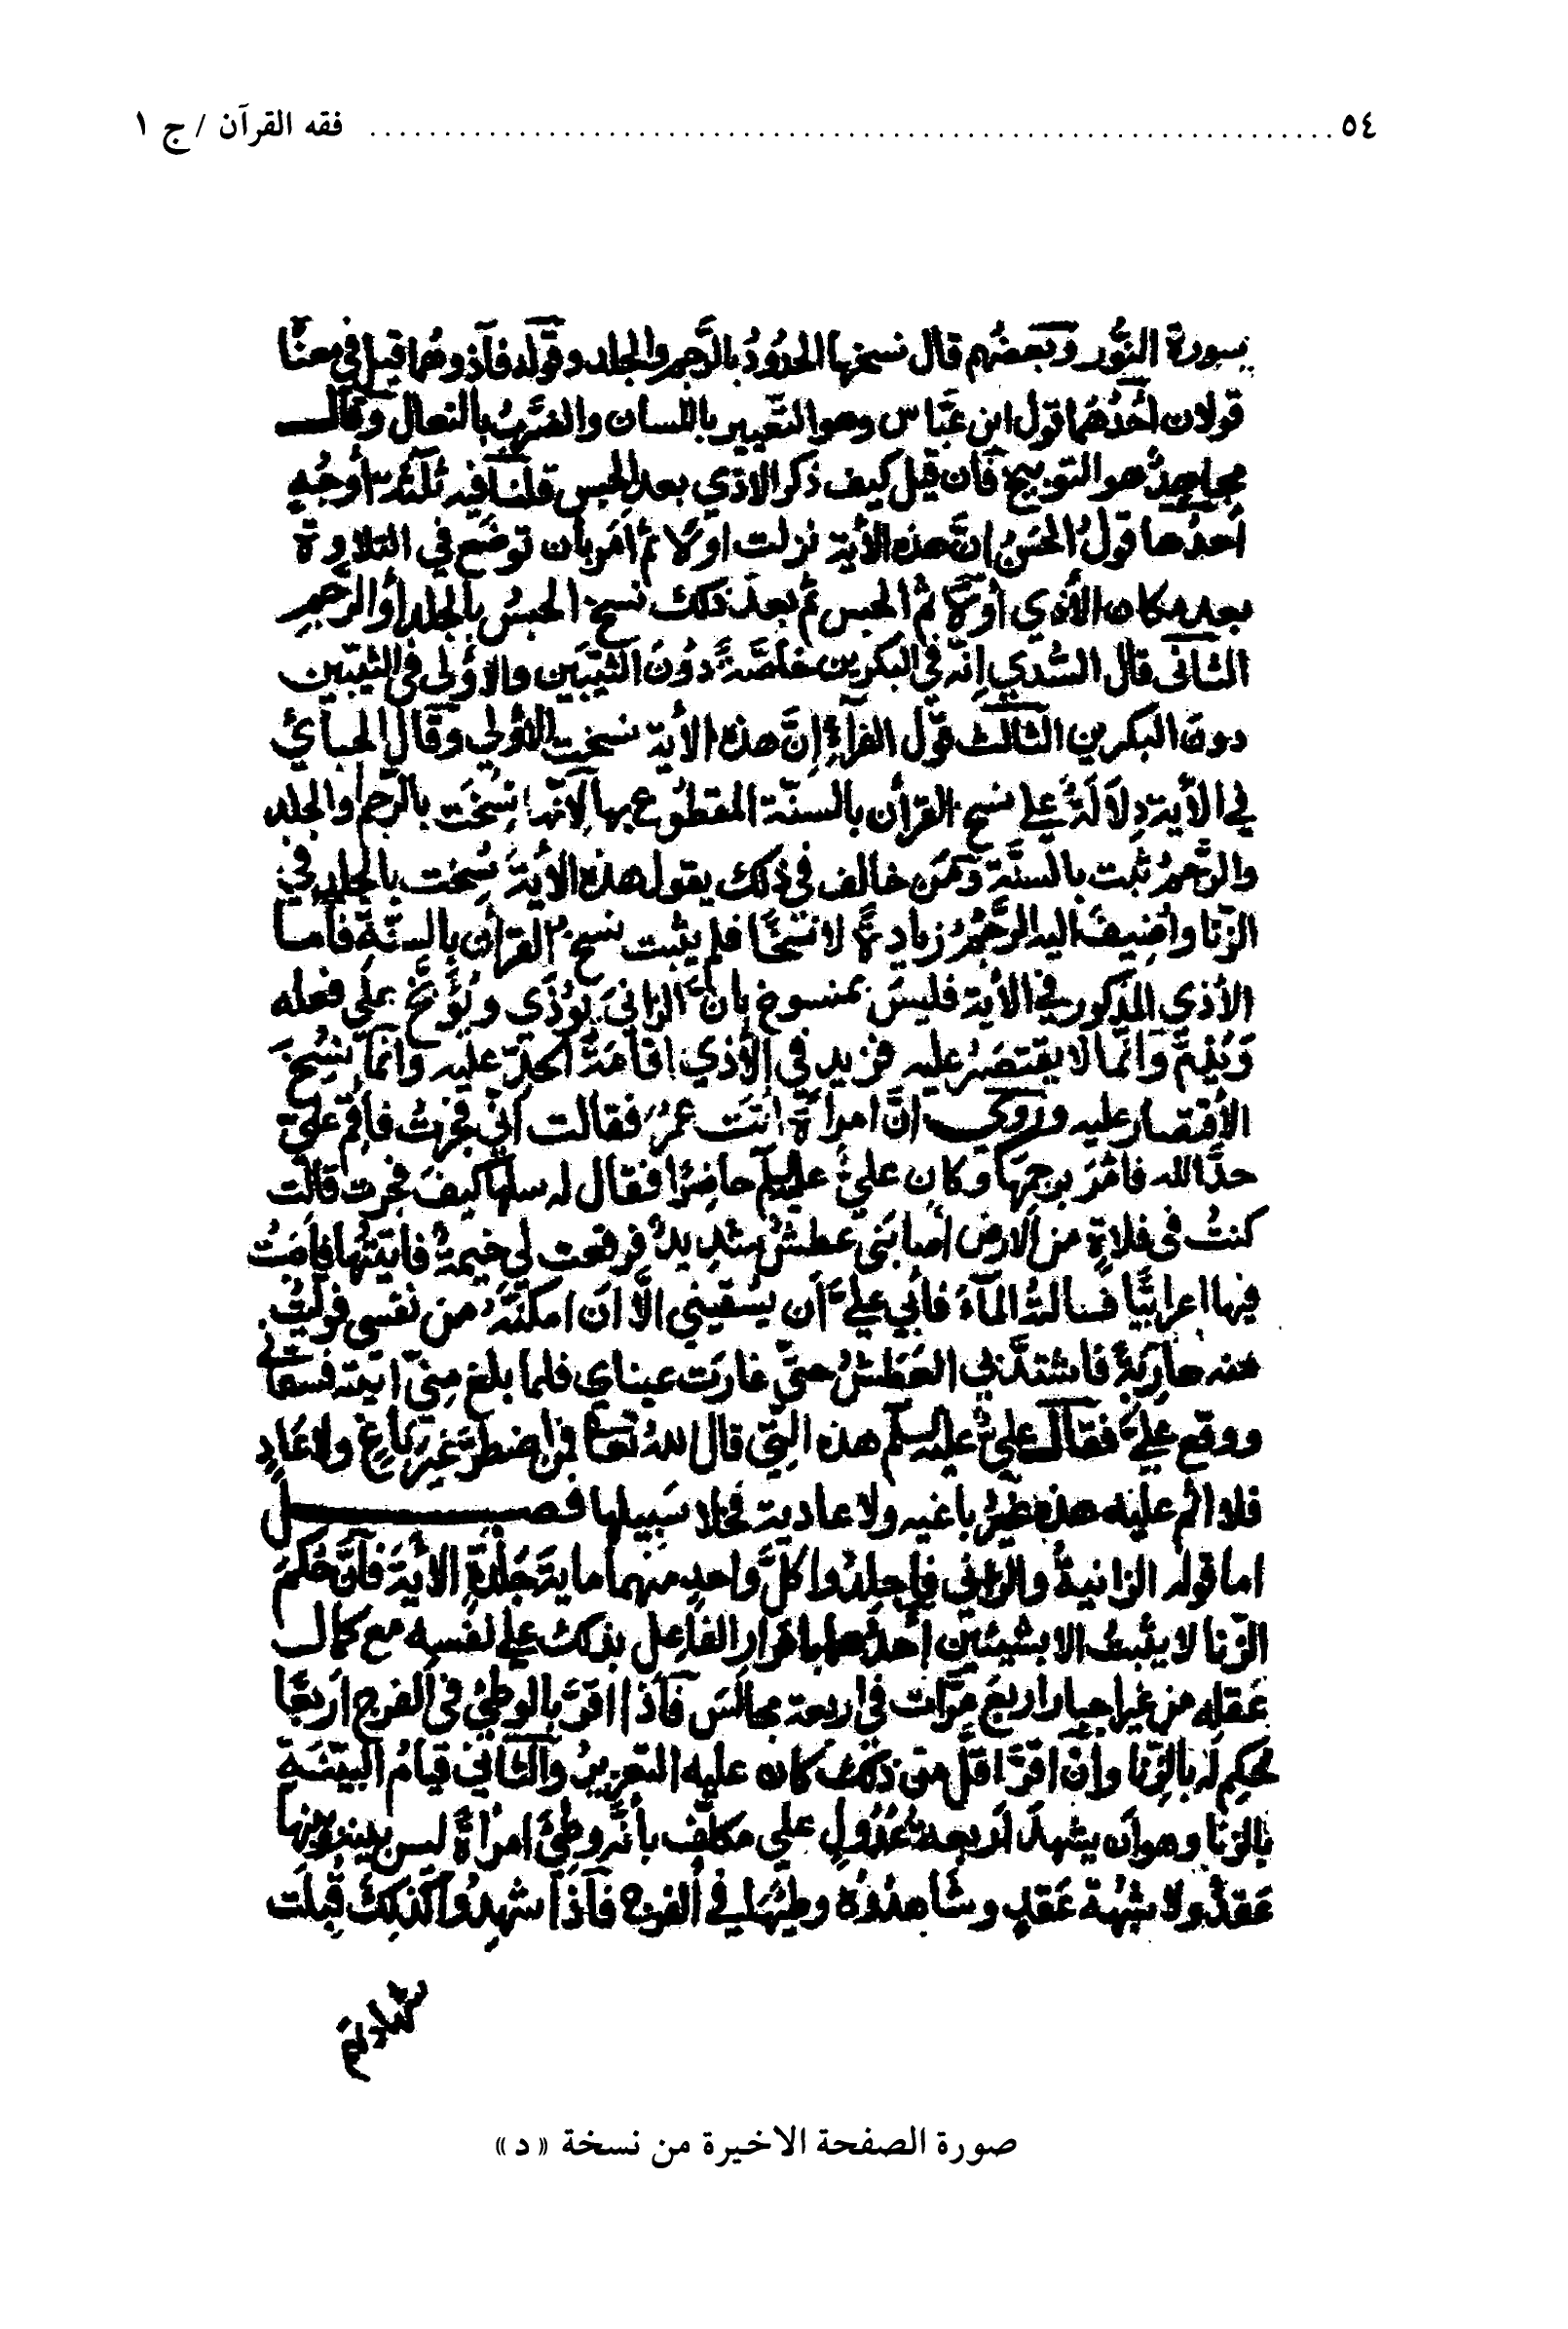 ٥٤ ........ فقه القرآن / ج ١
بسورة النُّور وبعضُهم قال نسخها الحدُودُ بالرَّجم والجلد وقوله فآذوهما قيل في معناه
قولان احَدُهُما قول ابن عَبّاس وهو التعيير باللسان والضّربُ بالنعال وقال
مجاهدٌ هو التوبيخ فان قيل كيف ذكر الاذي بعد الحبس قلنا فيه ثلثة أوجُهٍ
احدُها قولُ الحسَن انَّ هذه الأية نزلت اولًا ثم امَر بأن توضَع في التلاوة
بعد فكان الأذي اوّلا ثم الحبس ثم بعد ذلك نسخ الحبسُ بالجلد أو الرّجمِ
الثاني قال السُّدي إنّه في البكرين خاصّةً دوُنَ الثيّبين والاوُلى في الثيبين
دون البكرين الثالث قول الفراءِ إنَّ هذه الأية نسخت الأولي وقال الجبائي
في الأية دِلاَلَةٌ علي نسخ القرأن بالسنّة المقطوُع بها لانّها نُسِخَت بالرّجم والجلد
والرّجمُ ثبت بالسنَّة ومَن خالف في ذلك يقول هذه الأيَةُ نُسِخت بالجلد في
الزّنا واضِيفَ اليه الرَّجمُ زيادةً لا نَسْخًا فلم يثبت نسخ القرأن بالسنّةِ فأما
الأذي المذكور في الأية فليسَ بمنسوخ بأن الزاني يُؤذَي ويُوَبَّخُ على فعله
وَيُذمّ وانّما لا يقتصَرُ عليه فزيد في الأذي اقامَةُ الحدّ عليه وانّما نُسِخَ
الأقتصار عليه ورُوي انَّ امرأةً اتَت عُمر فقالت انّي فجرتُ فاقم عليّ
حدَّ الله فامَرَ برجمِهَا وكان عليٌّ عليه السلم حاضِرًا فقال له سلها كيفَ فجرت قالت
كنتُ في فلاةٍ من الارض اصابَني عطشٌ شديدٌ فرفعت لي خيمةٌ فاتيتُها فاصَبتُ
فيها اعرابيًّا فسالتهُ المآءَ فأبي عليّ أن يُسقيني الّا ان امكنَهُ من نفسي فولّيتُ
منه هارِبَةً فاشتدّ بي العَطَشُ حتّى غارَت عيناي فلما بلغ مِنّي اتيته فسقاني
ووقع عليّ فقال عليٌّ عليه السلم هذه التي قال اللهُ تعا فمن اضطرّ غير بَاغٍ ولا عَادٍ
فلا اثم عليه هذه غيرُ باغيه ولا عادية فخلا سَبيلها فصـــل
اما قوله الزانيةُ والزاني فاجلِدُوا كلَّ واحدٍ منهما ماية جَلدةٍ الأيَة فانَّ حُكمَ
الزّنا لا يثبتُ الا بشيئين أحدُهما باقرارِ الفاعِل بذلك علي نفسِه مع كمال
عَقله من غير اجبار اربعَ مرّات في اربعة مجالس فاذا اقرّ بالوطئِ في الفرج اربعًا
حُكِم له بالزّنا وإن اقرّ اقَلَّ من ذلك كان عليه التعزيرُ والثاني قيامُ البيّنَة
بالزنا وهو ان يشهدَ اربعةُ عُدُولٍ علي مكلّف بأنَّه وطِئَ امرأةً ليس بينه وبينها
عَقدٌ ولا شبهُة عَقدٍ وشاهدُوُه وطيَهَا في الفرج فاذا شهِدُوا كذلِكَ قُبِلَت
شهادتهم
صورة الصفحة الاخيرة من نسخة « د »